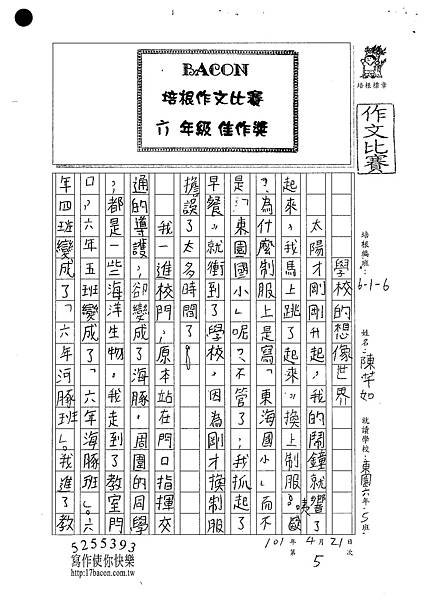 BACON
培根作文比賽
六年級 佳作獎
培根標章
作文比賽
培根編班：6-1-6
姓名：陳芊如
就讀學校：東園六年5班
101年4月21日
第5次
學校的想像世界
太陽才剛剛升起，我的鬧鐘就響了
起來，我馬上跳了起來，換上制服。咦
？為什麼制服上是寫「東海國小」而不
是「東園國小」呢？不管了，我抓起了
早餐，就衝到了學校，因為剛才換制服
擔誤了太多時間了！
我一進校門，原本站在門口指揮交
通的導護，卻變成了海豚。周圍的同學
，都是一些海洋生物。我走到了教室門
口，六年五班變成了「六年海豚班」。六
年四班變成了「六年河豚班」。我進了教
5255393
寫作使你快樂
http://17bacon.com.tw